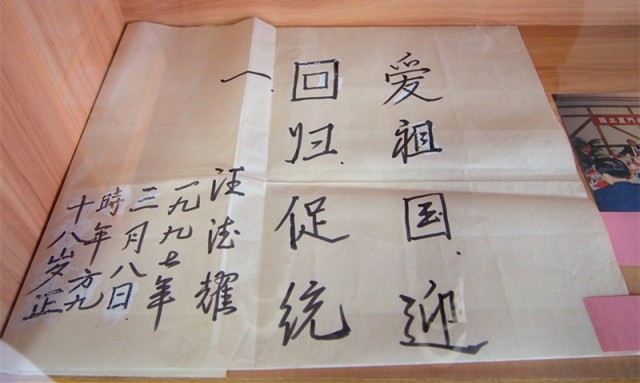 爱祖国迎
回归促统
一
汪德耀
一九九七年
三月八日
時年方九
十八岁正